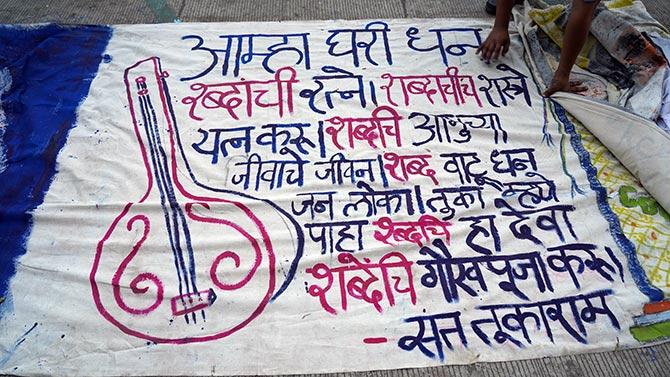 आम्हा घरी धन
शब्दांची रत्ने। शब्दाचीच शस्त्रे
यत्न करू। शब्दचि आमुच्या।
जीवाचे जीवन। शब्द वाटू धन
जन लोका। तुका म्हणे
पाहा शब्दचि हा देवा
शब्देंचि गौरव पूजा करू।
- संत तूकाराम